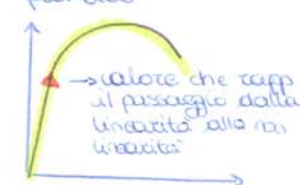 → valore che rapp
il passaggio dalla
linearità alla non
linearità